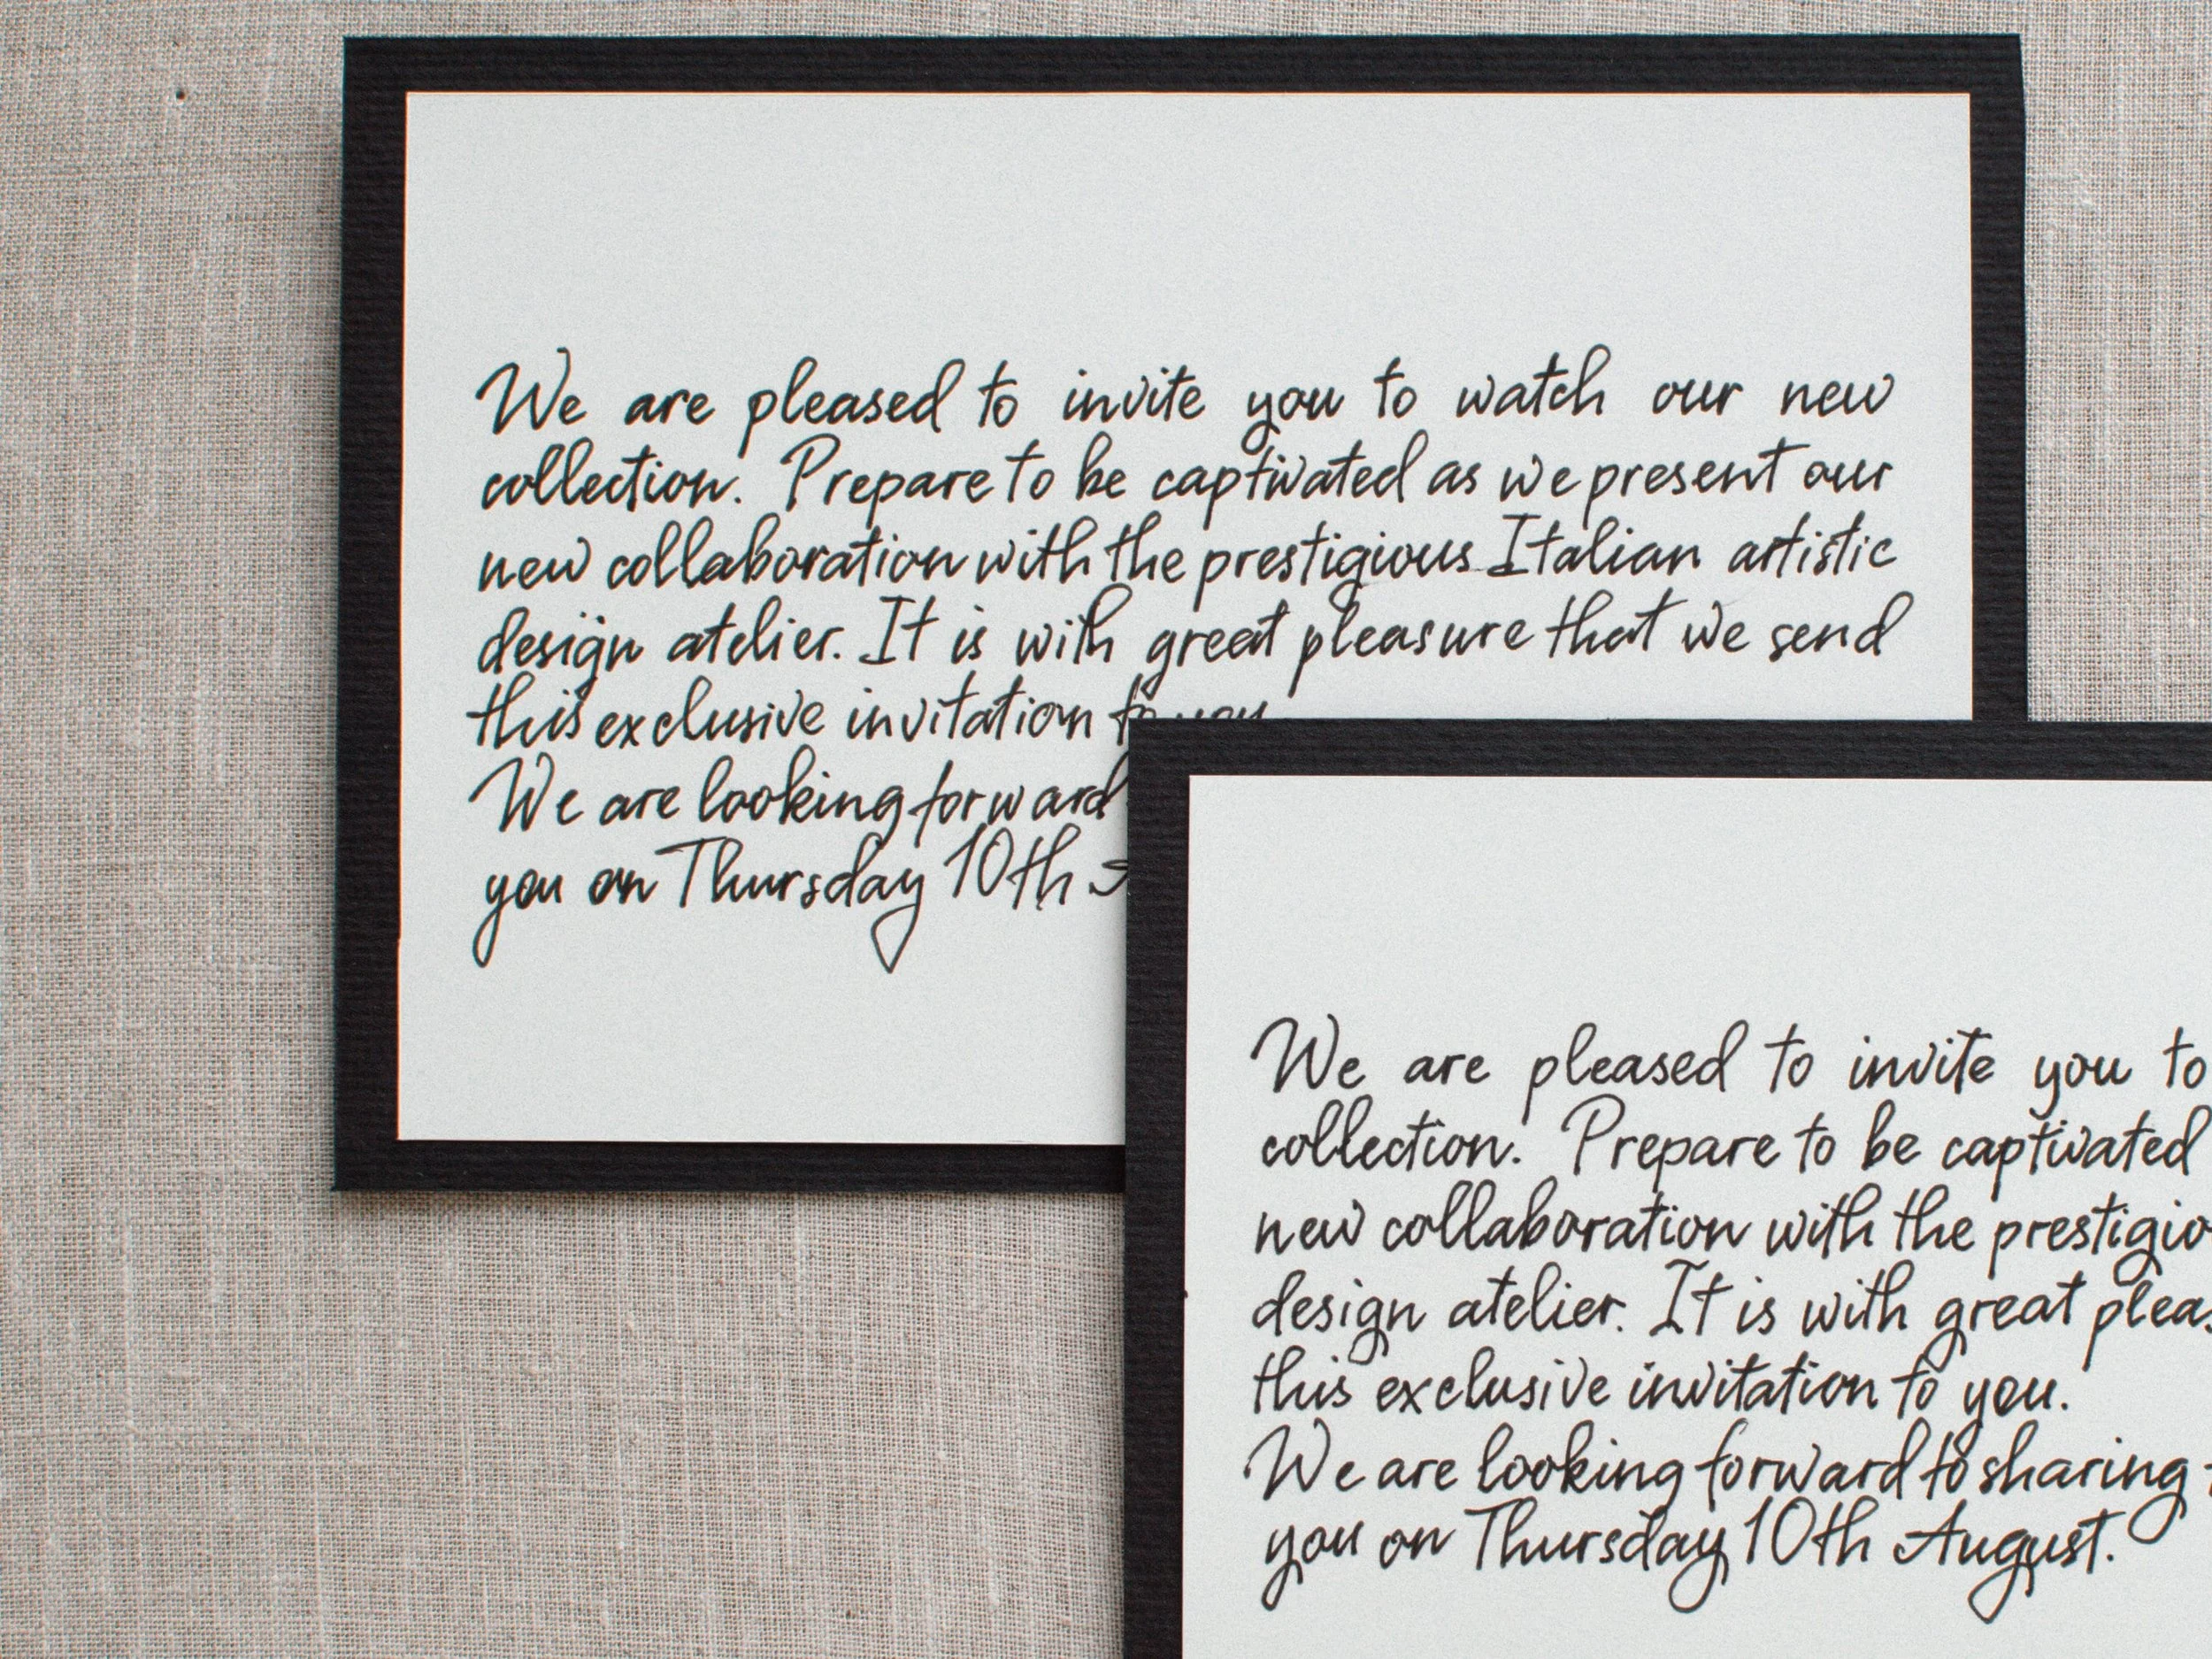 We are pleased to invite you to watch our new
collection. Prepare to be captivated as we present our
new collaboration with the prestigious Italian artistic
design atelier. It is with great pleasure that we send
this exclusive invitation to you
We are looking forward
you on Thursday 10th
We are pleased to invite you to
collection. Prepare to be captivated
new collaboration with the
design atelier. It is with great
this exclusive invitation to you.
We are looking forward to sharing
you on Thursday 10th August.